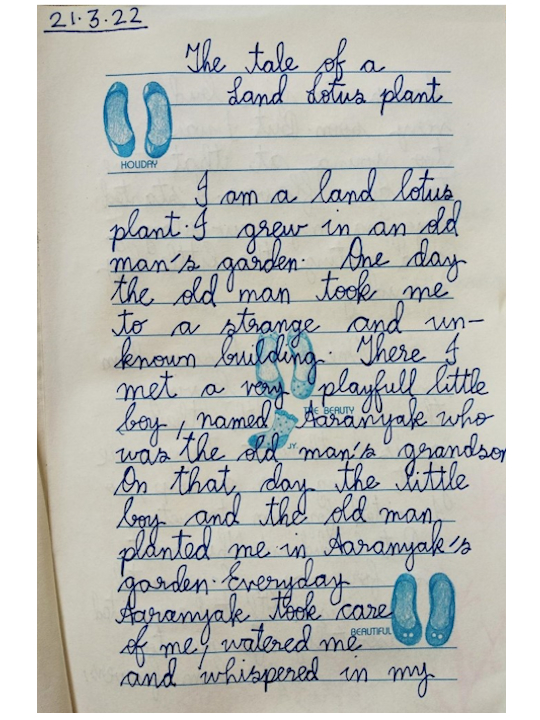 21.3.22
The tale of a
Land Lotus plant
HOLIDAY
I am a land lotus
plant. I grew in an old
man's garden. One day
the old man took me
to a strange and un-
known building. There I
met a very playfull little
THE BEAUTY
boy, named Aaranyak who
JY.
was the old man's grandson
On that day the little
boy and the old man
planted me in Aaranyak's
garden. Everyday
Aaranyak took care
BEAUTIFUL
of me, watered me
and whispered in my